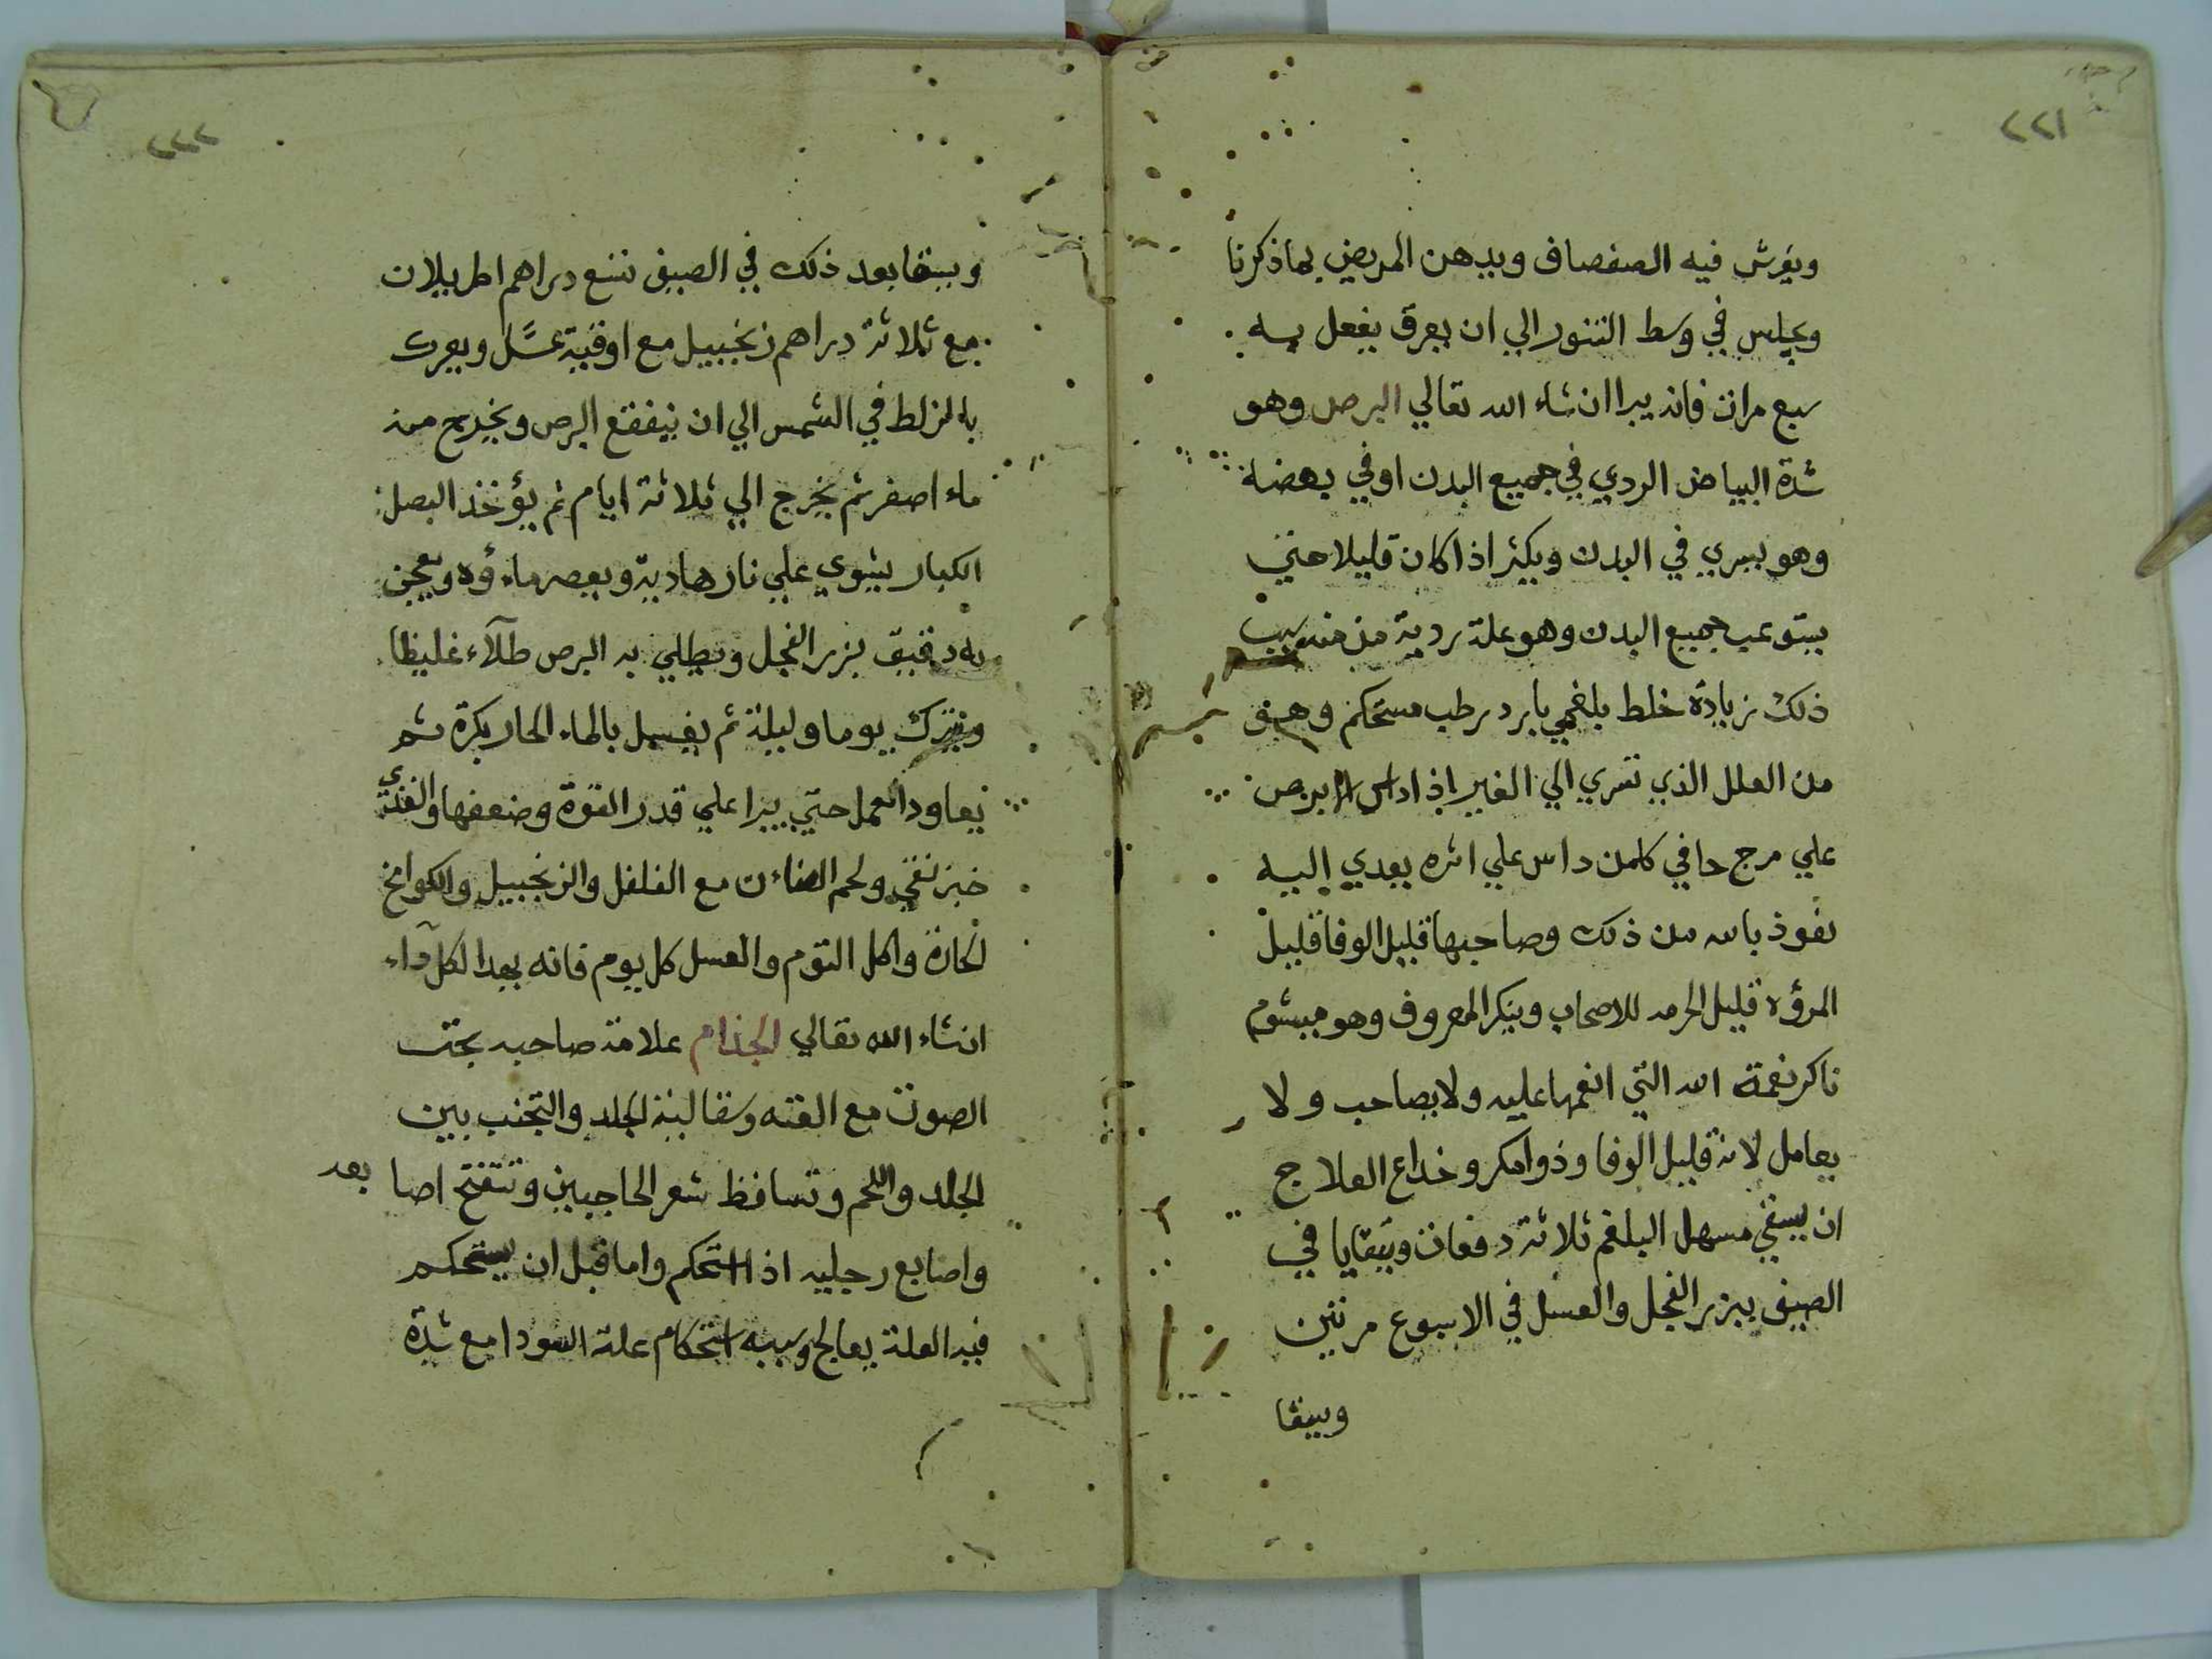 ٢٢١
ويفرش فيه الصفصاف ويدهن المريض بماذكرنا
ويجلس في وسط التنور الي ان يعرق يفعل به
سبع مرات فانه يبرا ان شاء الله تعالي البرص وهو
شدة البياض الردي في جميع البدن اوفي بعضه
وهو يسري في البدن ويكثر اذا كان قليلا حتي
يبتوعب جميع البدن وهو علة ردية مزمنه سبب
ذلك زيادة خلط بلغمي بارد رطب مستحكم وهي
من العلل الذي تسري الي الغير اذا داس الابرص
علي مرج حافي كلمن داس علي اثره يعدي اليه
نعوذ بالله من ذلك وصاحبها قليل الوفا قليل
المرؤه قليل الحرمه للاصحاب وينكر المعروف وهو ميشوم
ناكر نعمة الله التي انعمها عليه ولا يصاحب ولا
يعامل لانه قليل الوفا وذوا مكر وخداع العلاج
ان يسقي مسهل البلغم ثلاثة دفعات ويتقايا في
الصيف ببزر الفجل والعسل في الاسبوع مرتين
ويسقا
٢٢٢
ويسقا بعد ذلك في الصيف تسع دراهم اطريلان
مع ثلاثة دراهم زنجبيل مع اوقية عسل ويعرك
بالزلط في الشمس الي ان يتفقع البرص ويخرج منه
ماء اصفر ثم يخرج الي ثلاثة ايام ثم يؤخذ البصل
الكبار يشوي علي نار هادية ويعصر ماءؤه ويعجن
به دقيق بزر الفجل ويطلي به البرص طلآء غليظا
ويترك يوما وليلة ثم يغسل بالماء الحار بكرة ثم
يعاود العمل حتي يبرا علي قدر القوة وضعفها والغدي
خبز نقي ولحم الضاءن مع الفلفل والزنجبيل والكوامخ
الحارة واكل الثوم والعسل كل يوم فانه يعدا لكل دآء
انشاء الله تعالي الجذام علامة صاحبه بحت
الصوت مع الغنه وسقالبنة الجلد والتجنب بين
الجلد واللحم وتساقط شعر الحاجبين وتتفتح اصابعه
واصابع رجليه اذا استحكم واما قبل ان يستحكم
فيه العلة يعالج وسببه استحكام علة السودا مع شدة